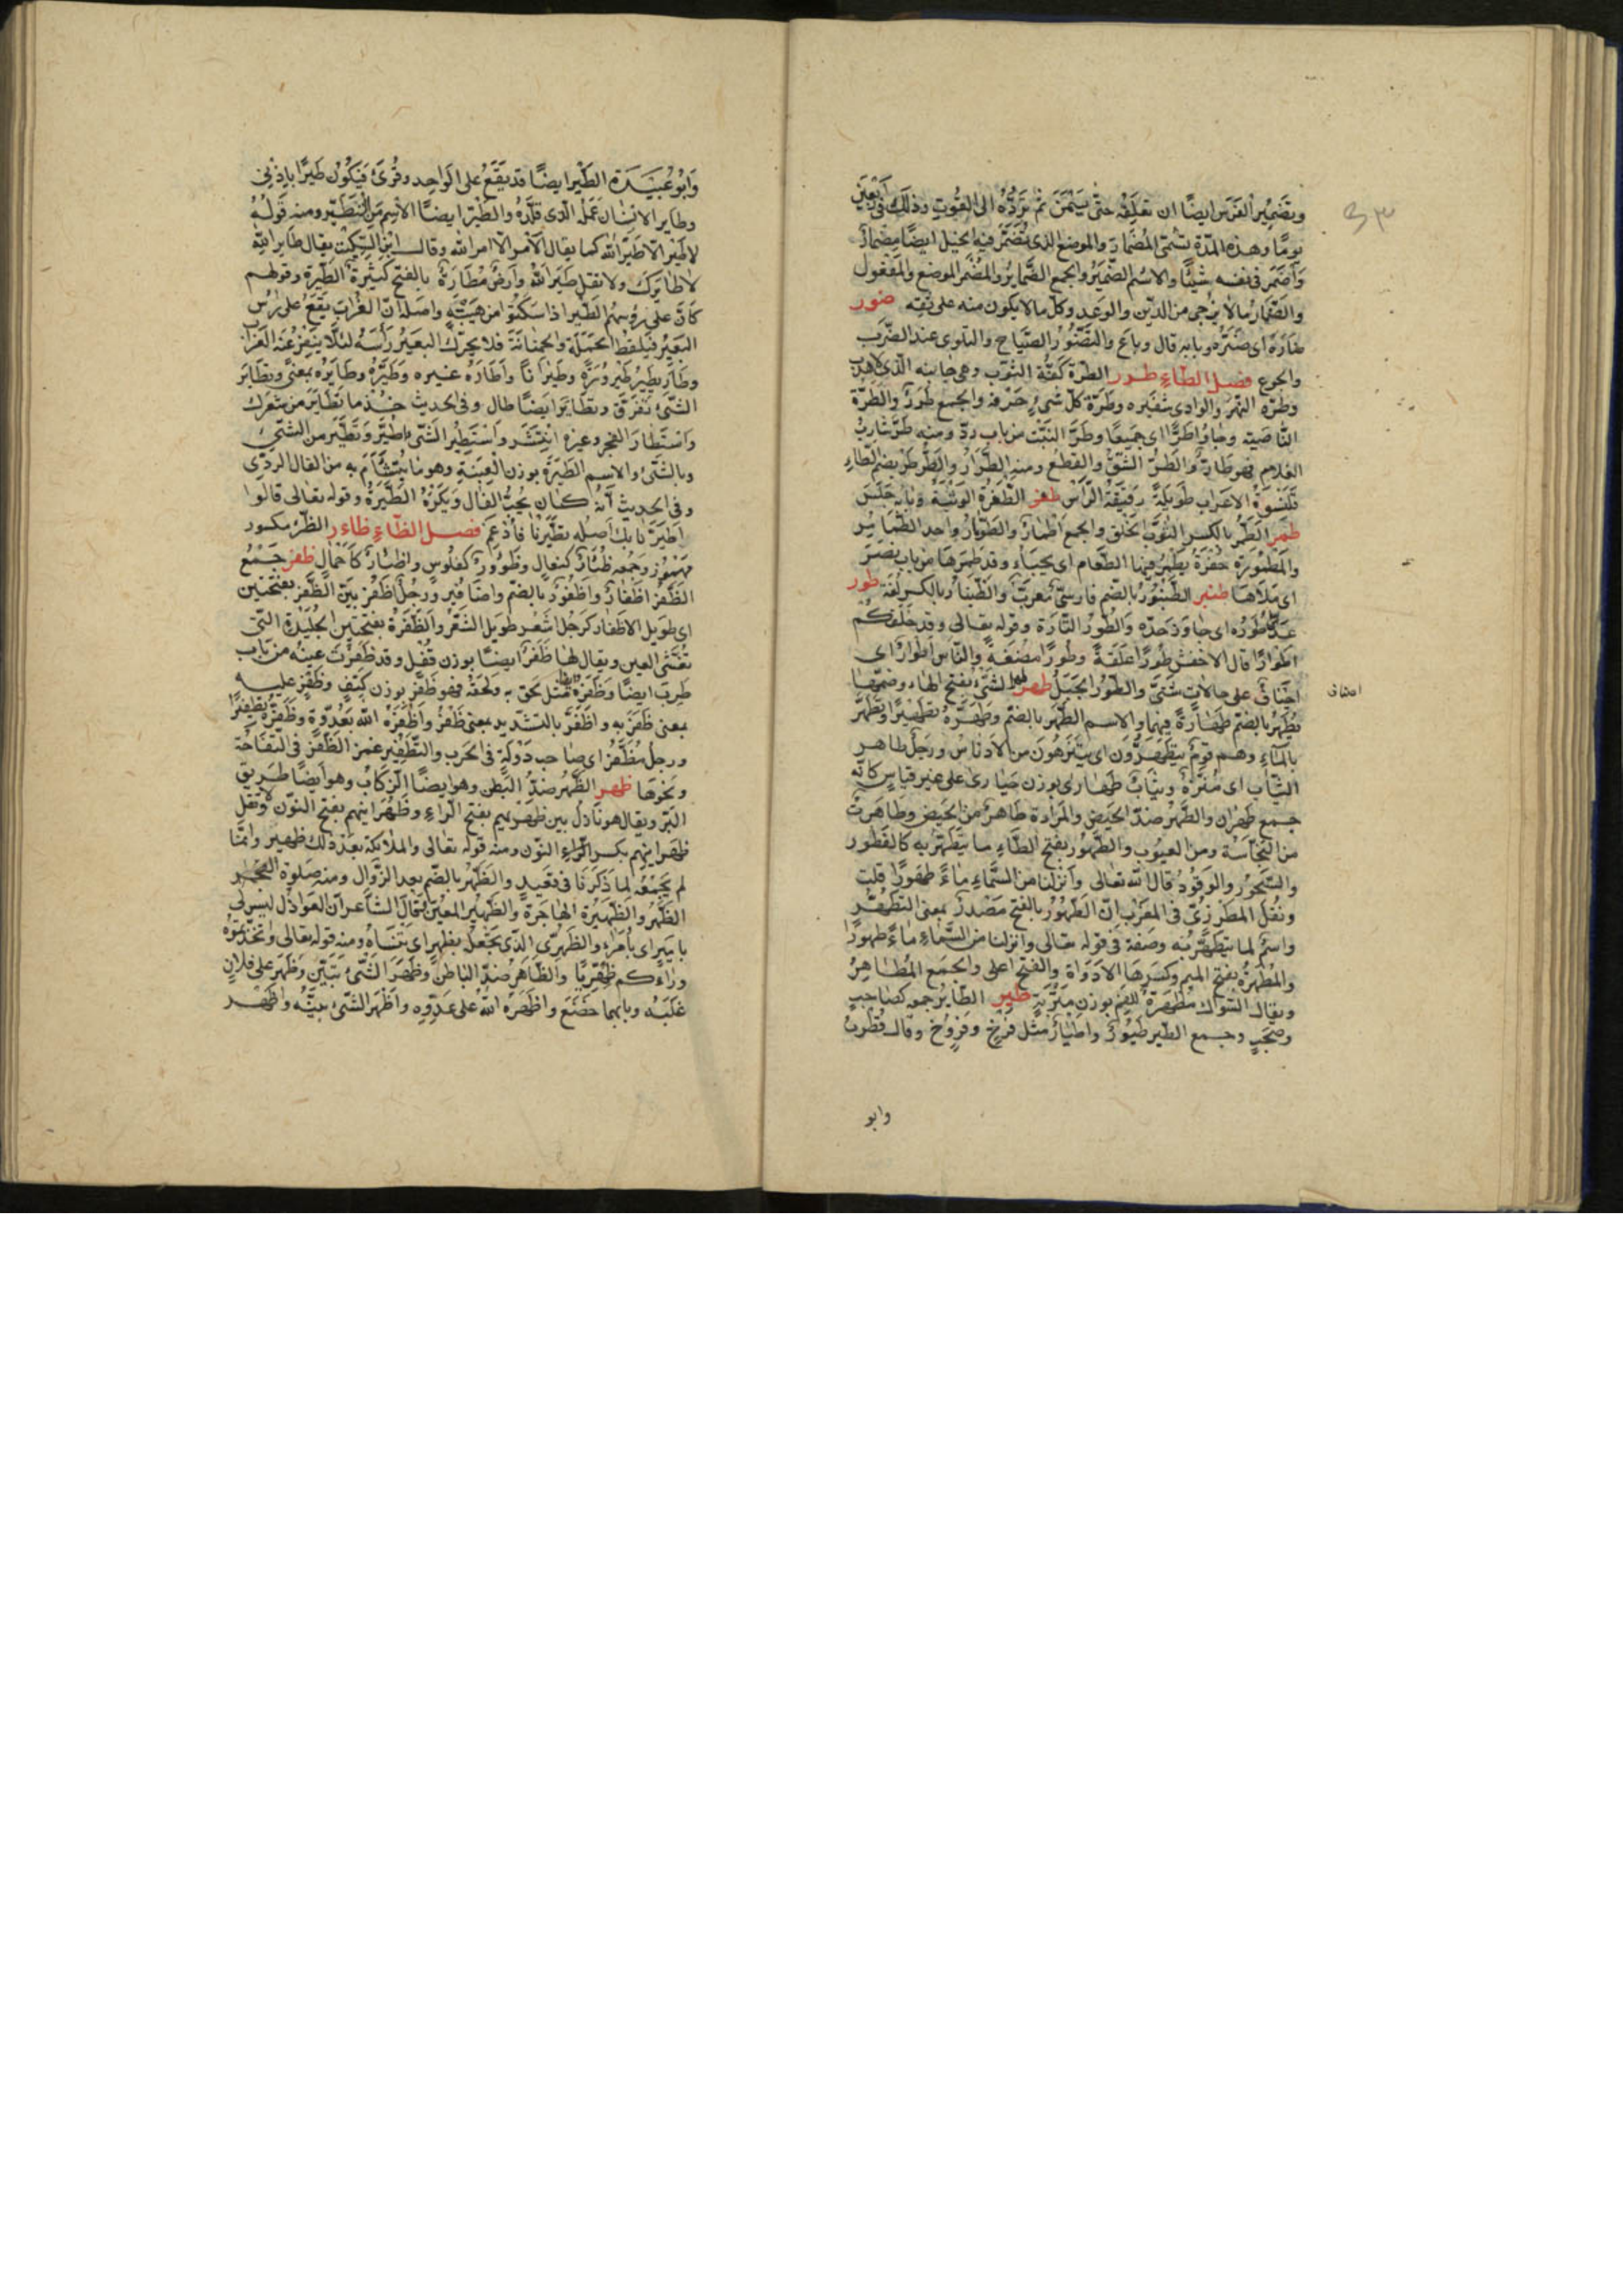 وتضمير الفرس ايضًا ان تعلفه حتى يسمن ثم تردّه الى القوت وذلك فى اربعين
يومًا وهذه المدّة تسمّى المضمار والموضع الذى تضمّر فيه الخيل ايضًا مضمار
وأضمر فى نفسه شيئًا والاسم الضمير والجمع الضماير والمضمر الموضع والمفعول
والضّمار ما لا يرجى من الدّين والوعد وكلّ ما لا يكون منه على ثقة ضور
ضاره اى ضرّه وبابه قال وباع والتضوّر الصّياح والتلوى عند الضرب
والجوع فصل الطّاء طرر الطرّة كفّة الثوب وهى جانبه الّذى لا هدب
وطرّة النّهر والوادى شفيره وطرّة كلّ شىء حرفه والجمع طرر والطّرّة
النّاصية وجاؤا طرًّا اى جميعًا وطرّ النبت من باب ردّ ومنه طرّ شارب
الغلام فهو طارّ والطّرّ الشّقّ والقطع ومنه الطّرّار والطّرطر بضم الطّاء
قلنسوة الاعراب طويلة دقيقة الرّأس طفر الطّفرة الوثبة وبابه جلس
طمر الطّمر بالكسر الثوب الخلق والجمع اطمار والطّومار واحد الطّمامير
والمطمورة حفرة يطمر فيها الطّعام اى يخبأ وقد طمرها من باب نصر
اى ملأها طنبر الطّنبور بالضم فارسىّ معرّب والطّنبار بالكسر لغة طور
عدا طوره اى جاوز حدّه والطّور التّارة وقوله تعالى وقد خلقكم
اطوارًا قال الاخفش طورًا علقة وطورًا مضغة والنّاس اطوار اى
اخياف على حالات شتّى والطّور الجبل طهر طهر الشىء بفتح الهاء وضمّها
اصناف
يطهر بالضم طهارة فيهما والاسم الطّهر بالضمّ وطهّره تطهيرًا وتطهّر
بالماء وهم قوم يتطهّرون اى يتنزّهون من الادناس ورجل طاهر
الثّياب اى منزّه وثياب طهارى بوزن حيارى على غير قياس كانّه
جمع طهران والطّهر ضدّ الحيض والمرأة طاهر من الحيض وطاهرة
من النجاسة ومن العيوب والطّهور بفتح الطّاء ما يتطهّر به كالفطور
والسّحور والوقود قال الله تعالى وانزلنا من السّماء ماءً طهورًا قلت
ونقل المطرزىّ فى المغرب انّ الطهور بالفتح مصدر بمعنى التطهّر
واسم لما يتطهّر به وصفة فى قوله تعالى وانزلنا من السّماء ماءً طهورًا
والمطهرة بفتح الميم وكسرها الاداوة والفتح اعلى والجمع المطاهر
ويقال السّواك مطهرة للفم بوزن متربة طير الطّاير جمعه كصاحب
وصحب وجمع الطّير طيور واطيار مثل فرخ وفروخ وقال قطرب
وابو
وابو عبيدة الطّير ايضًا قد يقع على الواحد وقرئ فيكون طيرًا باذنى
وطاير الانسان عمله الّذى قلّده والطّير ايضًا الاسم من التّطيّر ومنه قوله
لا طير الّا طير الله كما يقال لا أمر الّا امر الله وقال ابن السّكيت يقال طاير الله
لا طايرك ولا تقل طير الله وأرض مطارة بالفتح كثيرة الطّيرة وقولهم
كأنّ على رؤسهم الطّير اذا سكنوا من هيبة واصله انّ الغراب يقع على رأس
البعير فيلقط الحملة والحمنانة فلا يحرّك البعير رأسه لئلّا ينفر عنه الغراب
وطار يطير طيرورة وطيرانًا وأطاره غيره وطيّره وطايره بمعنى وتطاير
الشّىء تفرّق وتطاير ايضًا طال وفى الحديث خذ ما تطاير من شعرك
واستطار الفجر وغيره انتشر واستطير الشّىء طيّر وتطيّر من الشّىء
وبالشّىء والاسم الطيرة بوزن العنبة وهو ما يتشأّم به من الفال الردّى
وفى الحديث أنّه كان يحبّ الفال ويكره الطّيرة وقوله تعالى قالوا
اطّيّرنا بك اصله تطيّرنا فأدغم فصل الظّاء ظاءر الظّئر مكسور
مهموز وجمعه ظئار كنعال وظؤور كفلوس واظئار كأحمال ظفر جمع
الظّفر اظفار واظفور بالضّم واظافير ورجل أظفر بيّن الظّفر بفتحتين
اى طويل الاظفار كرجل أشعر طويل الشّعر والظّفرة بفتحتين الجليدة التى
تغشى العين ويقال لها ظفر ايضًا بوزن قفل وقد ظفرت عينه من باب
طرب ايضًا وظفر به ايضًا مثل لحق به ولحقه فهو ظفر بوزن كتف وظفر عليه
بمعنى ظفر به واظّفر بالتشديد بمعنى ظفر وأظفره الله بعدوّه وظفّره تظفيرًا
ورجل مظفّر اى صاحب دولة فى الحرب والتّظفير غمز الظّفر فى التّفاحة
ونحوها ظهر الظّهر ضدّ البطن وهو ايضًا الرّكاب وهو أيضًا طريق
البرّ ويقال هو نازل بين ظهريهم بفتح الرّاء وظهرانيهم بفتح النّون ولا تقل
ظهرانيهم بكسر النّون ومنه قوله تعالى والملائكة بعد ذلك ظهير وانّما
لم يجمعه لما ذكرنا فى قعيد والظّهر بالضّم بعد الزّوال ومنه صلوة الظهر
الظّهر والظّهيرة الهاجرة والظّهير المعين قال الشّاعر ان العواذل ليس لى
بامير اى بأمراء والظّهرىّ الّذى تجعله بظهر اى تنساه ومنه قوله تعالى واتّخذتموه
وراءكم ظهريًّا والظّاهر ضدّ الباطن وظهر الشّىء تبيّن وظهر على فلان
غلبه وبابهما خضع واظهره الله على عدوّه وأظهر الشّىء بيّنه واظهر